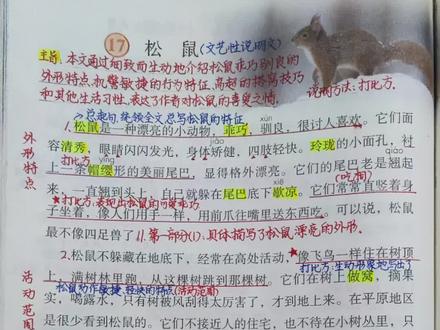 17 松鼠(文艺性说明文)
主旨:本文通过细致而生动地介绍松鼠乖巧驯良的
外形特点,机警敏捷的行为特征,高超的搭窝技巧
和其他生活习性,表达了作者对松鼠的喜爱之情。
说明方法:打比方。
总起句,统领全文总写松鼠的特征
xùn
1.松鼠是一种漂亮的小动物,乖巧,驯良,很讨人喜欢。它们面
jiǎo
容清秀,眼睛闪闪发光,身体矫健,四肢轻快。玲珑的小面孔,衬
打比方 yīng
上一条帽缨形的美丽尾巴,显得格外漂亮。它们的尾巴老是翘起
(吃相)
来,一直翘到头上,自己就躲在尾巴底下歇凉。它们常常直竖着身
打比方:表现出松鼠的可爱乖巧
子坐着,像人们用手一样,用前爪往嘴里送东西吃。可以说,松鼠
最不像四足兽了。第一部分(1):具体描写了松鼠漂亮的外形。
2.松鼠不躲藏在地底下,经常在高处活动,像飞鸟一样住在树顶
打比方:生动形象地写出了
上,满树林里跑,从这棵树跳到那棵树。它们在树上做窝,摘果
松鼠动作敏捷、轻快的特点(活动范围)
实,喝露水,只有树被风刮得太厉害了,才到地上来。在平原地区
是很少看到松鼠的。它们不接近人的住宅,也不待在小树丛里,只
外形特点
活动范围